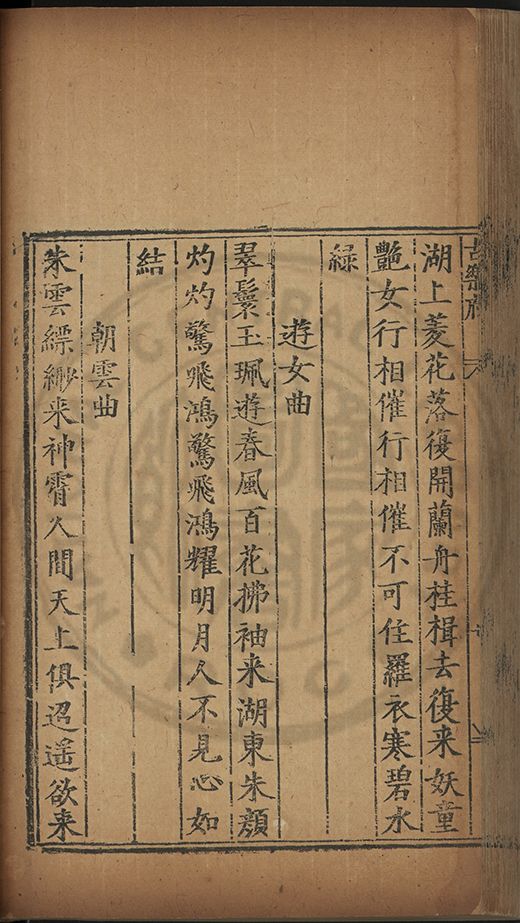 古樂府
湖上菱花落復開蘭舟桂楫去復来妖童
艷女行相催行相催不可住羅衣寒碧水
緑
遊女曲
翠鬟玉珮遊春風百花拂袖来湖東朱顔
灼灼驚飛鴻驚飛鴻耀明月人不見心如
結
朝雲曲
朱雲縹緲来神霄人間天上俱迢遥欲来